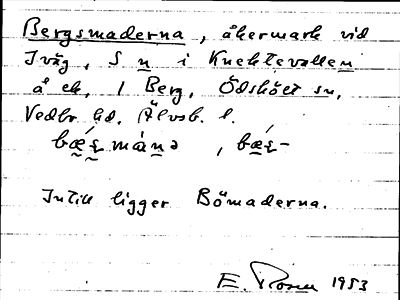 Bergsmaderna, åkermark vid
Iväg, S n i Knektevallen
å ek, 1 Berg, Ödskölt sn,
Vedbo hd. Älvsb. l.
Intill ligger Bömaderna.
E. Rosell 1953